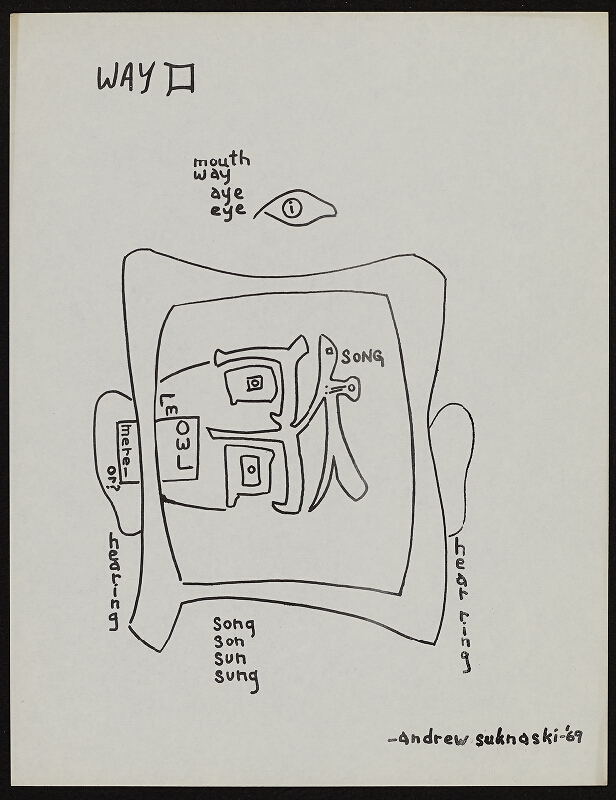 WAY 口
mouth
way
aye
eye
i
SONG
歌
or?
hearing
hear ring
song
son
sun
sung
-andrew suknaski-'69